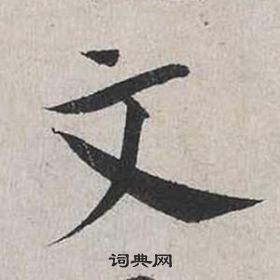 文
词典网